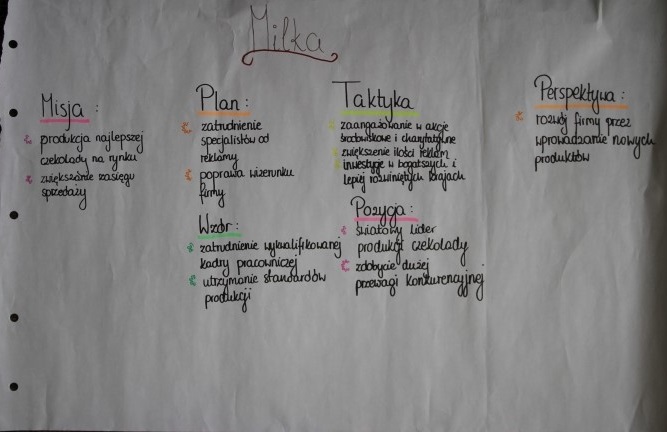 Milka
Misja :
produkcja najlepszej
czekolady na rynku
zwiększenie zasięgu
sprzedaży
Plan :
zatrudnienie
specjalistów od
reklamy
poprawa wizerunku
firmy
Wzór :
zatrudnienie wykwalifikowanej
kadry pracowniczej
utrzymanie standardów
produkcji
Taktyka
zaangażowanie w akcje
środowiskowe i charytatywne
zwiększenie ilości reklam
inwestycje w bogatszych i
lepiej rozwiniętych krajach
Pozycja :
światowy lider
produkcji czekolady
zdobycie dużej
przewagi konkurencyjnej
Perspektywa :
rozwój firmy przez
wprowadzanie nowych
produktów